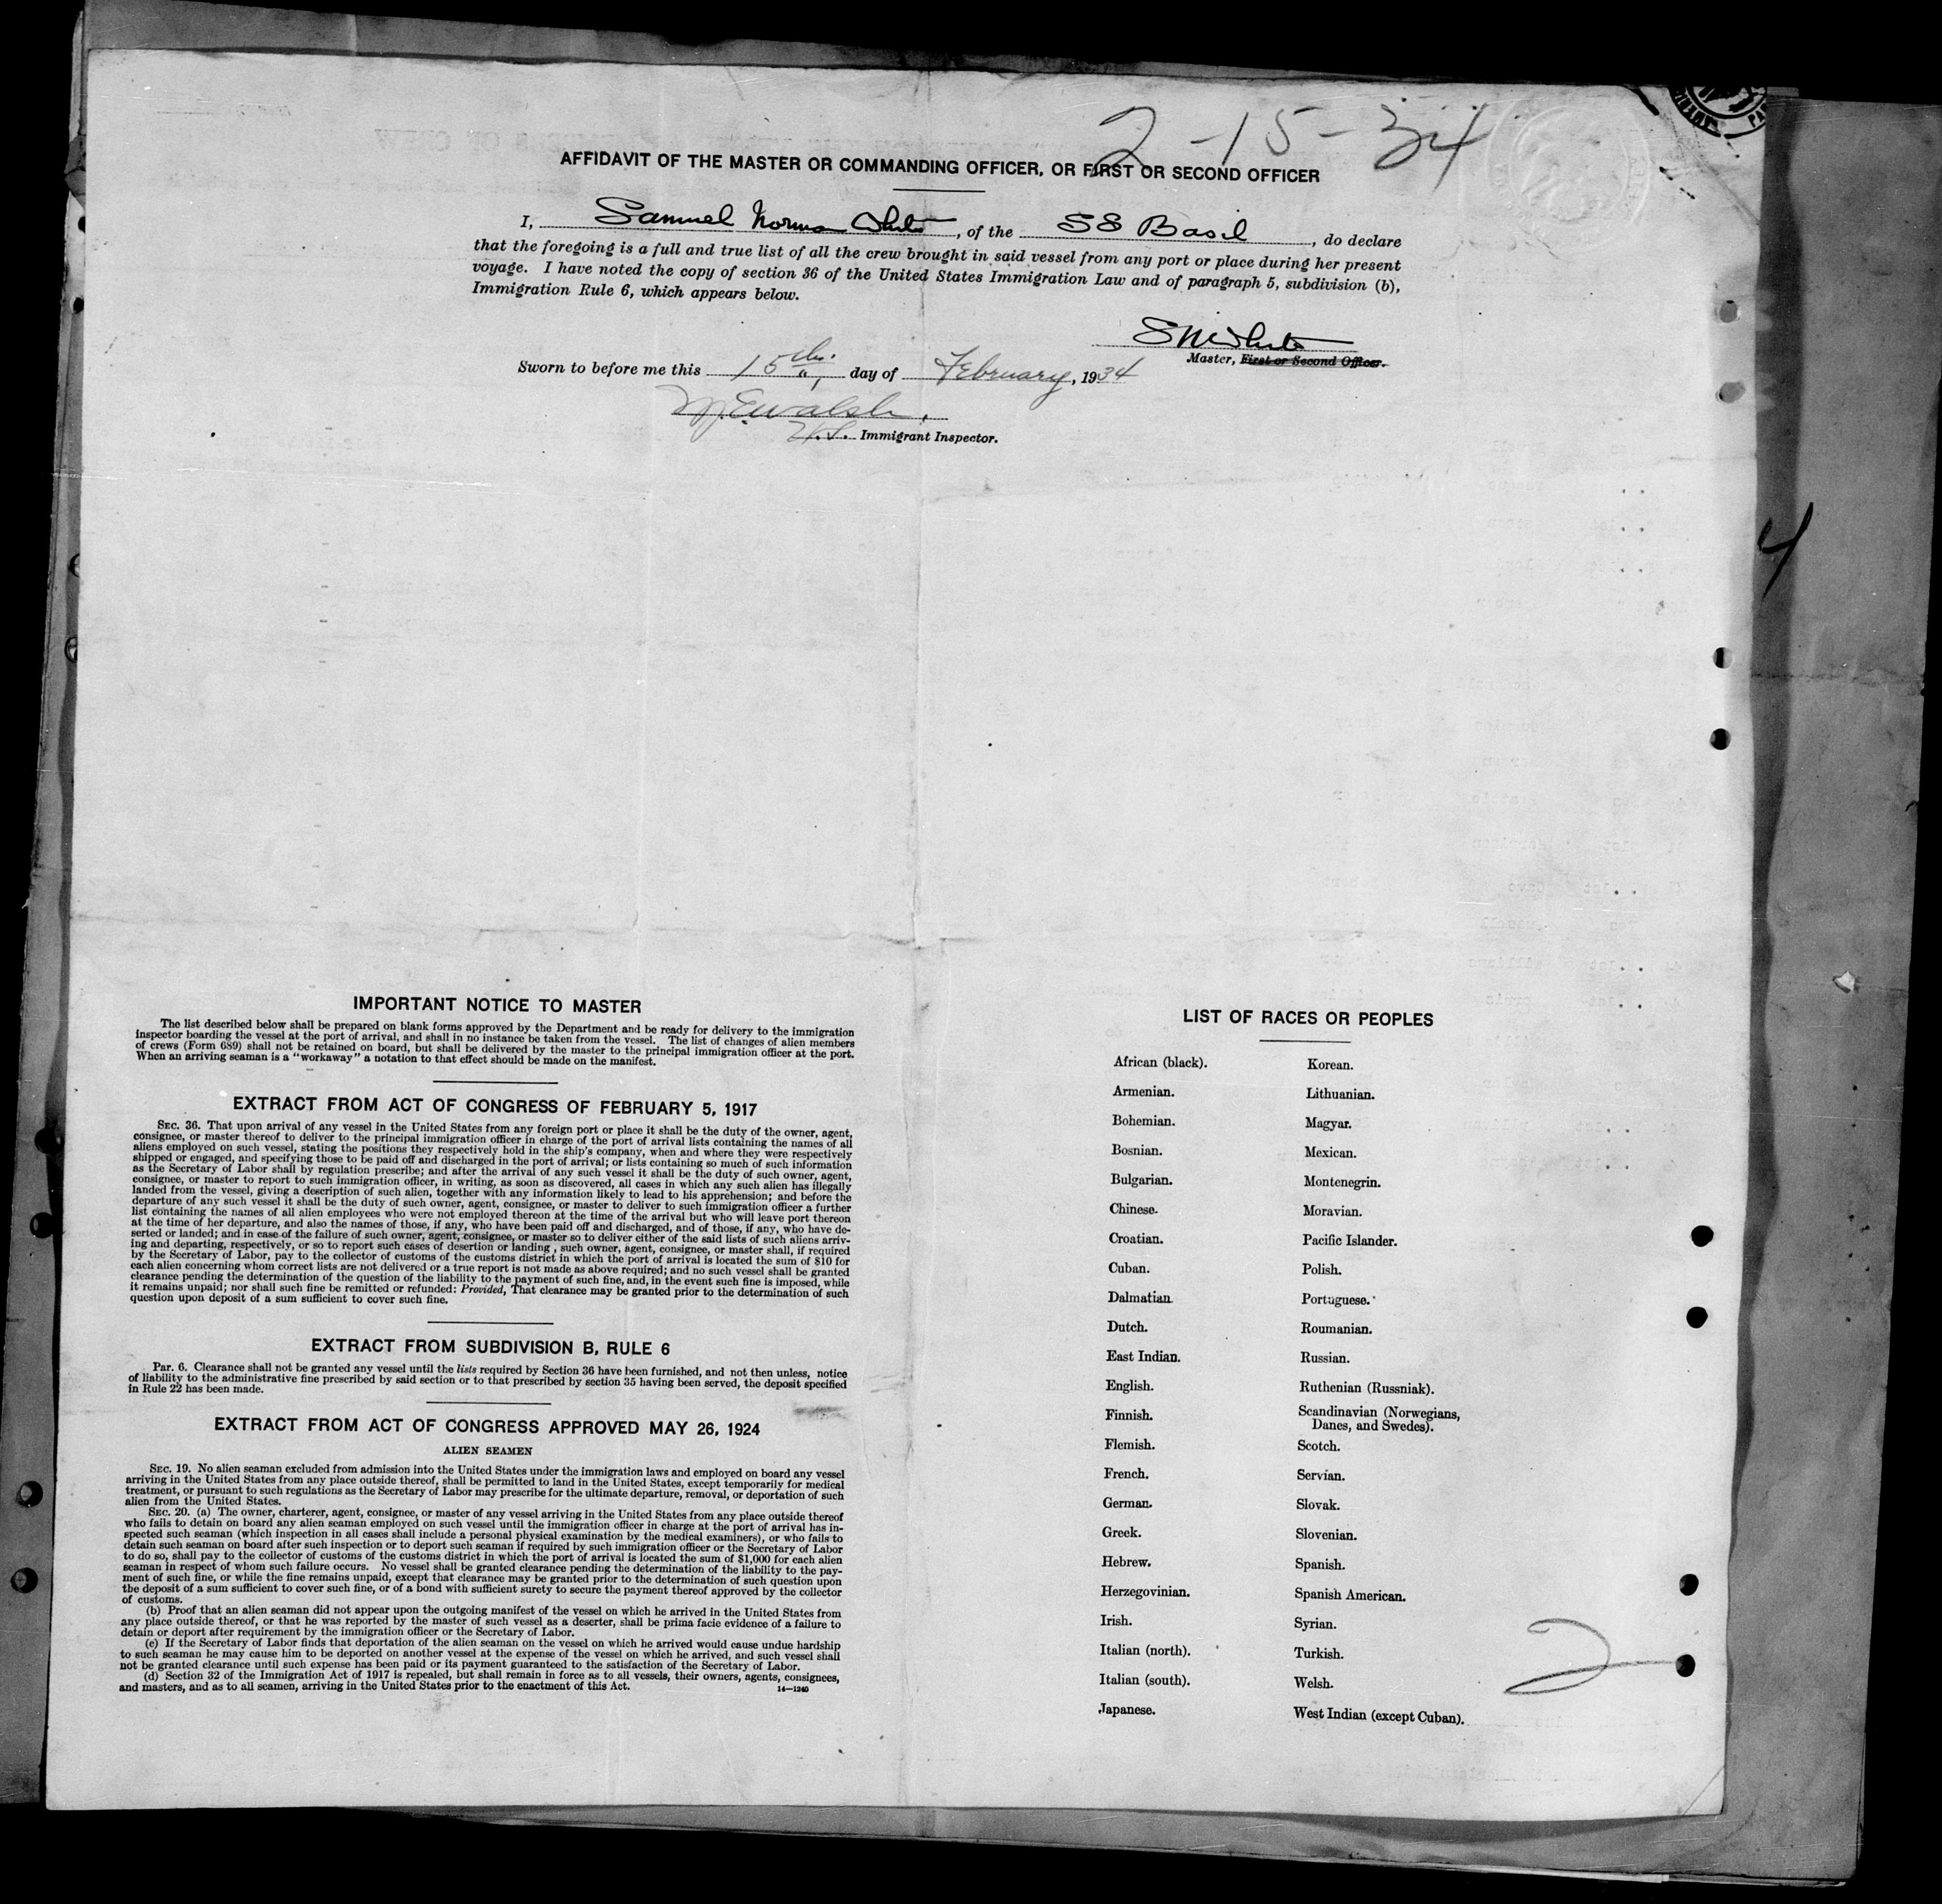 2-15-34
AFFIDAVIT OF THE MASTER OR COMMANDING OFFICER, OR FIRST OR SECOND OFFICER
I, Samuel Norman White, of the SS Basil, do declare
that the foregoing is a full and true list of all the crew brought in said vessel from any port or place during her present
voyage. I have noted the copy of section 36 of the United States Immigration Law and of paragraph 5, subdivision (b),
Immigration Rule 6, which appears below.
SNWhite
Master, First or Second Officer.
Sworn to before me this 15th. day of February, 1934
Walsh.
U.S. Immigrant Inspector.
4
IMPORTANT NOTICE TO MASTER
The list described below shall be prepared on blank forms approved by the Department and be ready for delivery to the immigration
inspector boarding the vessel at the port of arrival, and shall in no instance be taken from the vessel. The list of changes of alien members
of crews (Form 689) shall not be retained on board, but shall be delivered by the master to the principal immigration officer at the port.
When an arriving seaman is a "workaway" a notation to that effect should be made on the manifest.
EXTRACT FROM ACT OF CONGRESS OF FEBRUARY 5, 1917
SEC. 36. That upon arrival of any vessel in the United States from any foreign port or place it shall be the duty of the owner, agent,
consignee, or master thereof to deliver to the principal immigration officer in charge of the port of arrival lists containing the names of all
aliens employed on such vessel, stating the positions they respectively hold in the ship's company, when and where they were respectively
shipped or engaged, and specifying those to be paid off and discharged in the port of arrival; or lists containing so much of such information
as the Secretary of Labor shall by regulation prescribe; and after the arrival of any such vessel it shall be the duty of such owner, agent,
consignee, or master to report to such immigration officer, in writing, as soon as discovered, all cases in which any such alien has illegally
landed from the vessel, giving a description of such alien, together with any information likely to lead to his apprehension; and before the
departure of any such vessel it shall be the duty of such owner, agent, consignee, or master to deliver to such immigration officer a further
list containing the names of all alien employees who were not employed thereon at the time of the arrival but who will leave port thereon
at the time of her departure, and also the names of those, if any, who have been paid off and discharged, and of those, if any, who have de-
serted or landed; and in case of the failure of such owner, agent, consignee, or master so to deliver either of the said lists of such aliens arriv-
ing and departing, respectively, or so to report such cases of desertion or landing , such owner, agent, consignee, or master shall, if required
by the Secretary of Labor, pay to the collector of customs of the customs district in which the port of arrival is located the sum of $10 for
each alien concerning whom correct lists are not delivered or a true report is not made as above required; and no such vessel shall be granted
clearance pending the determination of the question of the liability to the payment of such fine, and, in the event such fine is imposed, while
it remains unpaid; nor shall such fine be remitted or refunded: Provided, That clearance may be granted prior to the determination of such
question upon deposit of a sum sufficient to cover such fine.
EXTRACT FROM SUBDIVISION B, RULE 6
Par. 6. Clearance shall not be granted any vessel until the lists required by Section 36 have been furnished, and not then unless, notice
of liability to the administrative fine prescribed by said section or to that prescribed by section 35 having been served, the deposit specified
in Rule 22 has been made.
EXTRACT FROM ACT OF CONGRESS APPROVED MAY 26, 1924
ALIEN SEAMEN
SEC. 19. No alien seaman excluded from admission into the United States under the immigration laws and employed on board any vessel
arriving in the United States from any place outside thereof, shall be permitted to land in the United States, except temporarily for medical
treatment, or pursuant to such regulations as the Secretary of Labor may prescribe for the ultimate departure, removal, or deportation of such
alien from the United States.
SEC. 20. (a) The owner, charterer, agent, consignee, or master of any vessel arriving in the United States from any place outside thereof
who fails to detain on board any alien seaman employed on such vessel until the immigration officer in charge at the port of arrival has in-
spected such seaman (which inspection in all cases shall include a personal physical examination by the medical examiners), or who fails to
detain such seaman on board after such inspection or to deport such seaman if required by such immigration officer or the Secretary of Labor
to do so, shall pay to the collector of customs of the customs district in which the port of arrival is located the sum of $1,000 for each alien
seaman in respect of whom such failure occurs. No vessel shall be granted clearance pending the determination of the liability to the pay-
ment of such fine, or while the fine remains unpaid, except that clearance may be granted prior to the determination of such question upon
the deposit of a sum sufficient to cover such fine, or of a bond with sufficient surety to secure the payment thereof approved by the collector
of customs.
(b) Proof that an alien seaman did not appear upon the outgoing manifest of the vessel on which he arrived in the United States from
any place outside thereof, or that he was reported by the master of such vessel as a deserter, shall be prima facie evidence of a failure to
detain or deport after requirement by the immigration officer or the Secretary of Labor.
(c) If the Secretary of Labor finds that deportation of the alien seaman on the vessel on which he arrived would cause undue hardship
to such seaman he may cause him to be deported on another vessel at the expense of the vessel on which he arrived, and such vessel shall
not be granted clearance until such expense has been paid or its payment guaranteed to the satisfaction of the Secretary of Labor.
(d) Section 32 of the Immigration Act of 1917 is repealed, but shall remain in force as to all vessels, their owners, agents, consignees,
and masters, and as to all seamen, arriving in the United States prior to the enactment of this Act.
14—1240
LIST OF RACES OR PEOPLES
African (black).
Armenian.
Bohemian.
Bosnian.
Bulgarian.
Chinese.
Croatian.
Cuban.
Dalmatian.
Dutch.
East Indian.
English.
Finnish.
Flemish.
French.
German.
Greek.
Hebrew.
Herzegovinian.
Irish.
Italian (north).
Italian (south).
Japanese.
Korean.
Lithuanian.
Magyar.
Mexican.
Montenegrin.
Moravian.
Pacific Islander.
Polish.
Portuguese.
Roumanian.
Russian.
Ruthenian (Russniak).
Scandinavian (Norwegians,
Danes, and Swedes).
Scotch.
Servian.
Slovak.
Slovenian.
Spanish.
Spanish American.
Syrian.
Turkish.
Welsh.
West Indian (except Cuban).
2